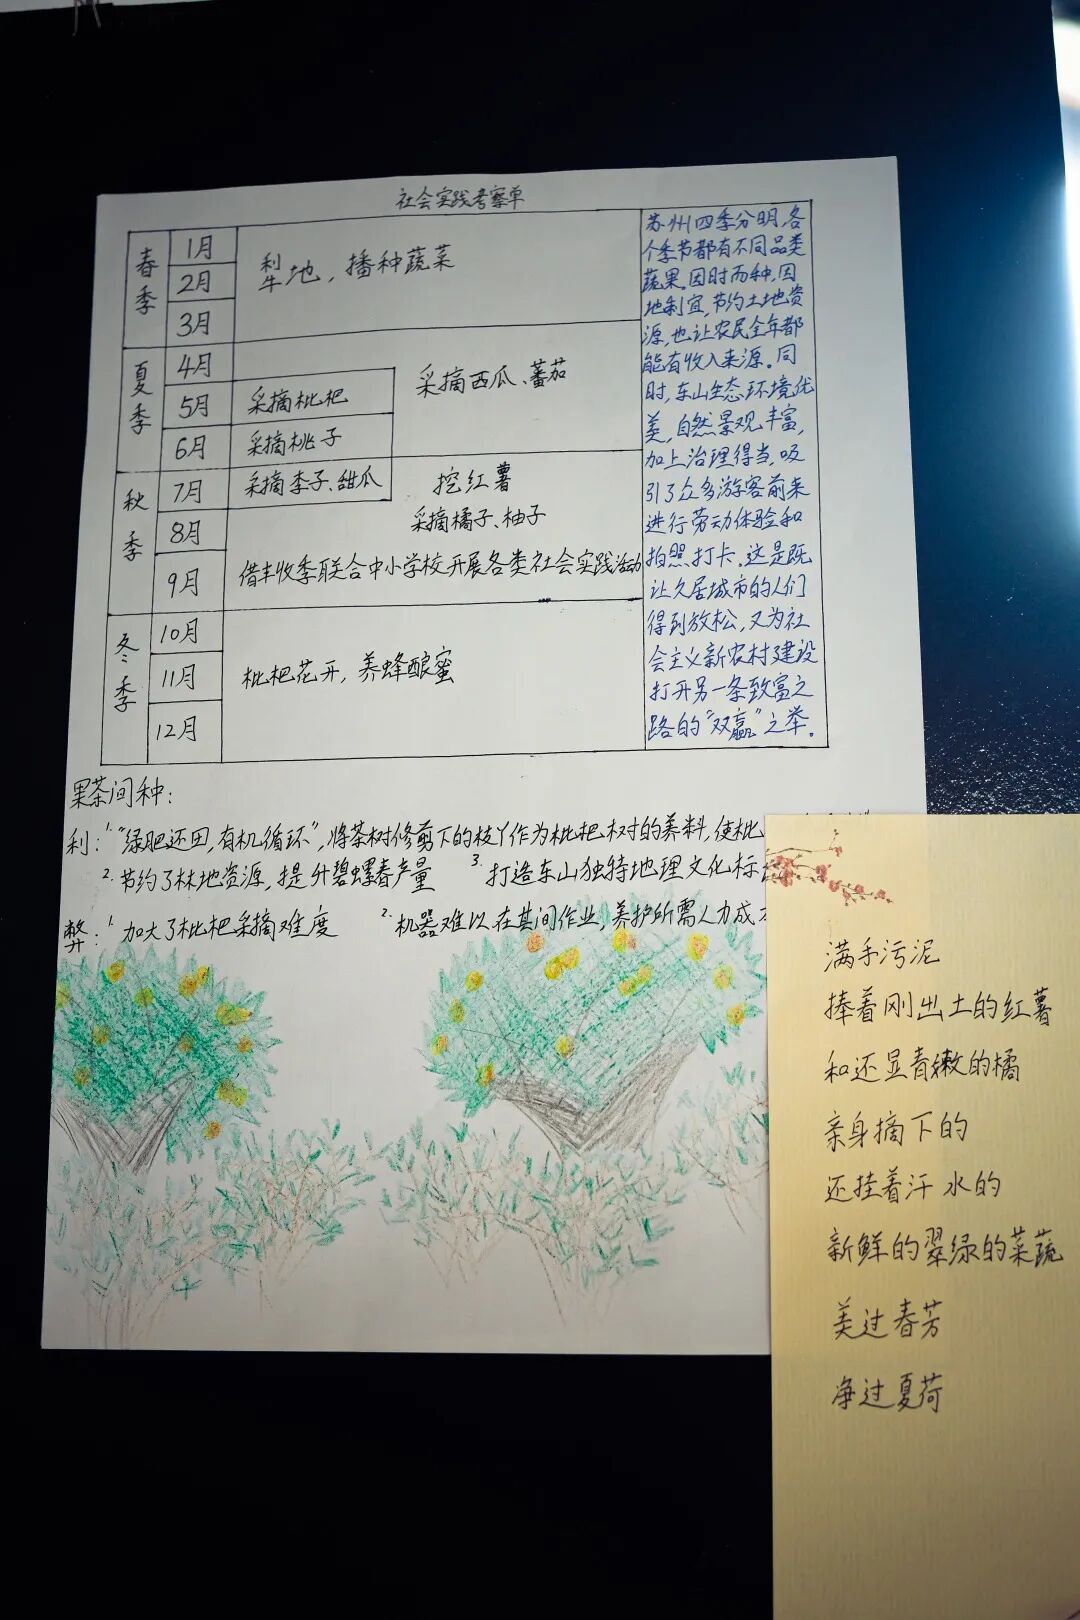 社会实践考察单
春季
1月
2月
3月
犁地，播种蔬菜
夏季
4月
5月
6月
采摘枇杷
采摘桃子
采摘西瓜、蕃茄
秋季
7月
8月
9月
采摘李子、甜瓜
挖红薯
采摘橘子、柚子
借丰收季联合中小学校开展各类社会实践活动
冬季
10月
11月
12月
枇杷花开，养蜂酿蜜
苏州四季分明，各
个季节都有不同品类
蔬果。因时而种，因
地利宜，节约土地资
源，也让农民全年都
能有收入来源。同
时，东山生态环境优
美，自然景观丰富，
加上治理得当，吸
引了众多游客前来
进行劳动体验和
拍照、打卡。这是既
让久居城市的人们
得到放松，又为社
会主义新农村建设
打开另一条致富之
路的“双赢”之举。
果茶间种：
利：1.“绿肥还田，有机循环”，将茶树修剪下的枝丫作为枇杷树的养料，使枇
2.节约了林地资源，提升碧螺春产量 3.打造东山独特地理文化标
弊：1.加大了枇杷采摘难度 2.机器难以在其间作业，养护所需人力成
满手污泥
捧着刚出土的红薯
和还显青嫩的橘
亲身摘下的
还挂着汗水的
新鲜的翠绿的菜蔬
美过春芳
净过夏荷